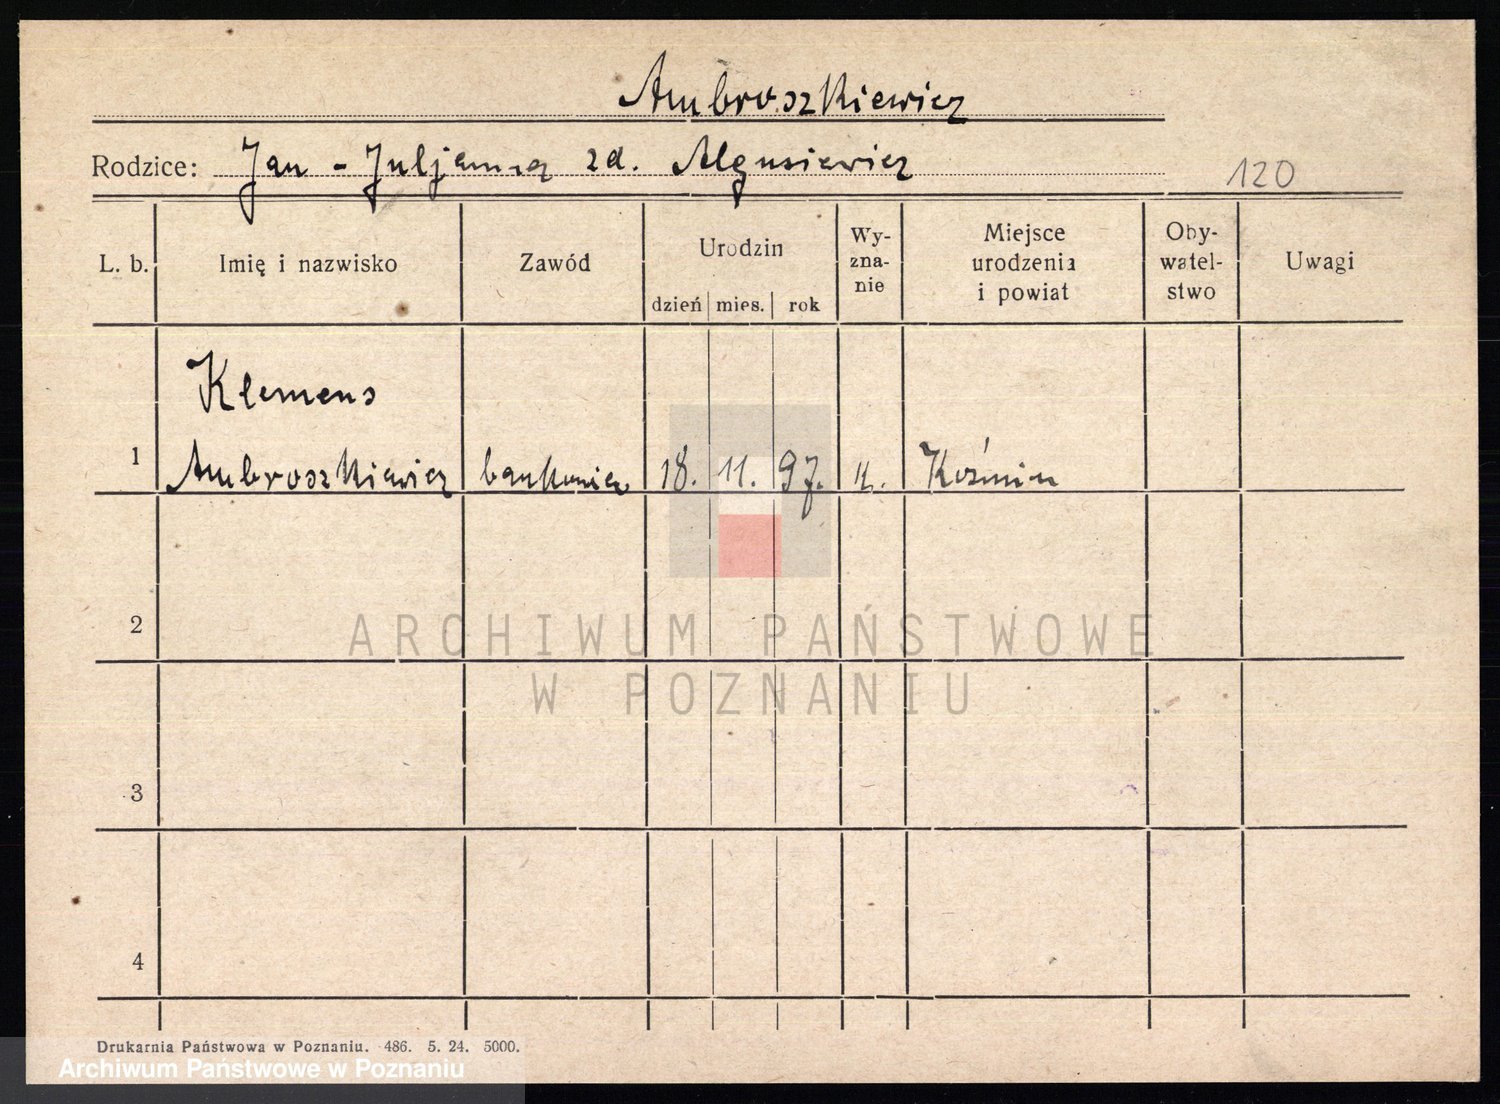 Ambroszkiewicz
Rodzice: Jan - Juljanna zd. Algusiewicz
120
L. b. Imię i nazwisko Zawód Urodzin dzień mies. rok Wy-zna-nie Miejsce urodzenia i powiat Oby-watel-stwo Uwagi
Klemens
1 Ambroszkiewicz bankowiec 18. 11. 97. k. Koźmin
2
ARCHIWUM PAŃSTWOWE
W POZNANIU
3
4
Drukarnia Państwowa w Poznaniu. 486. 5. 24. 5000.
Archiwum Państwowe w Poznaniu